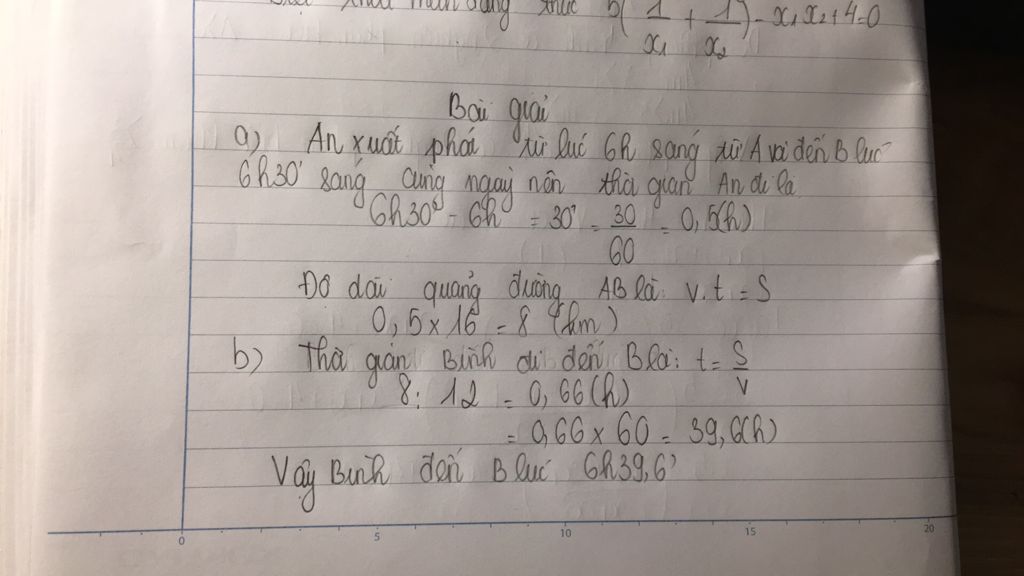 thoả mãn đẳng thức 5(1/x₁ + 1/x₂) - x₁x₂ + 4 = 0
Bài giải
a) An xuất phát từ lúc 6h sáng từ A và đến B lúc
6h30' sáng cùng ngày nên thời gian An đi là
6h30' - 6h = 30' = 30/60 = 0,5(h)
Độ dài quảng đường AB là: v.t = S
0,5 x 16 = 8 (km)
b) Thời gian Bình đi đến B là: t = S/v
8 : 12 = 0,66(h)
= 0,66 x 60 = 39,6(h)
Vậy Bình đến B lúc 6h39,6'
0 5 10 15 20